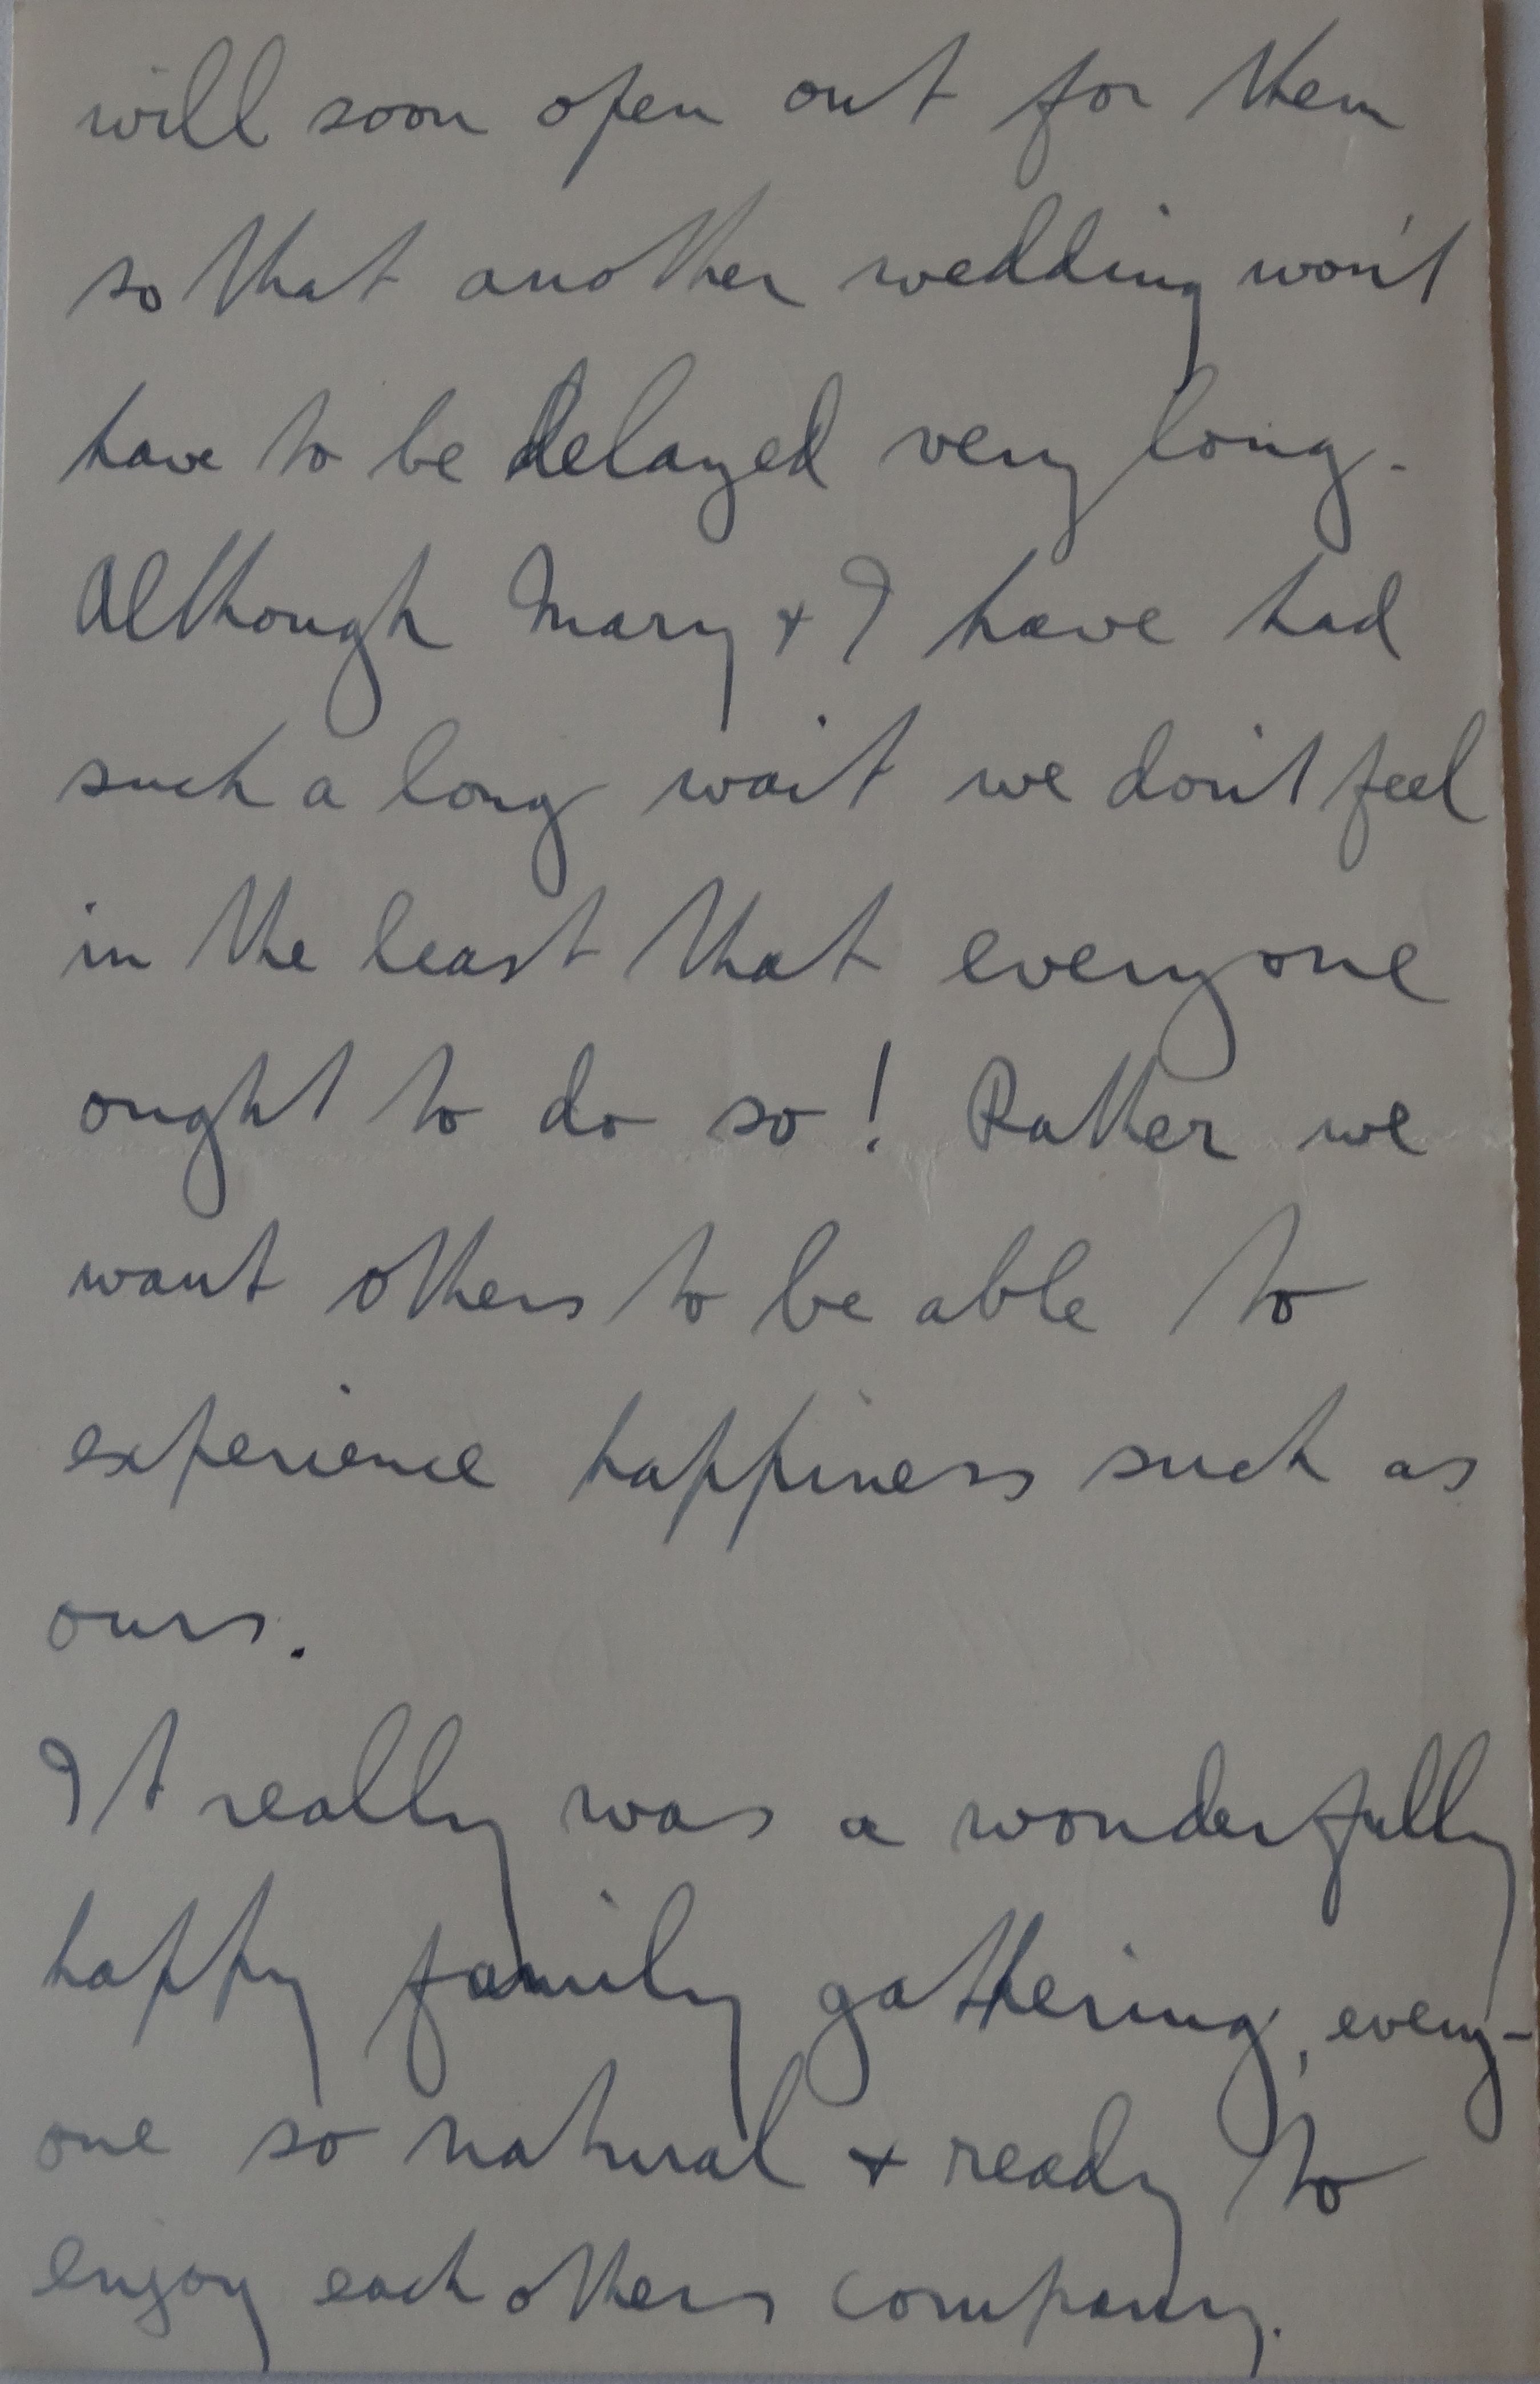 will soon open out for them
so that another wedding won't
have to be delayed very long.
Although Mary + I have had
such a long wait we don't feel
in the least that everyone
ought to do so! Rather we
want others to be able to
experience happiness such as
ours.
It really was a wonderfully
happy family gathering, every-
one so natural + ready to
enjoy each others company.